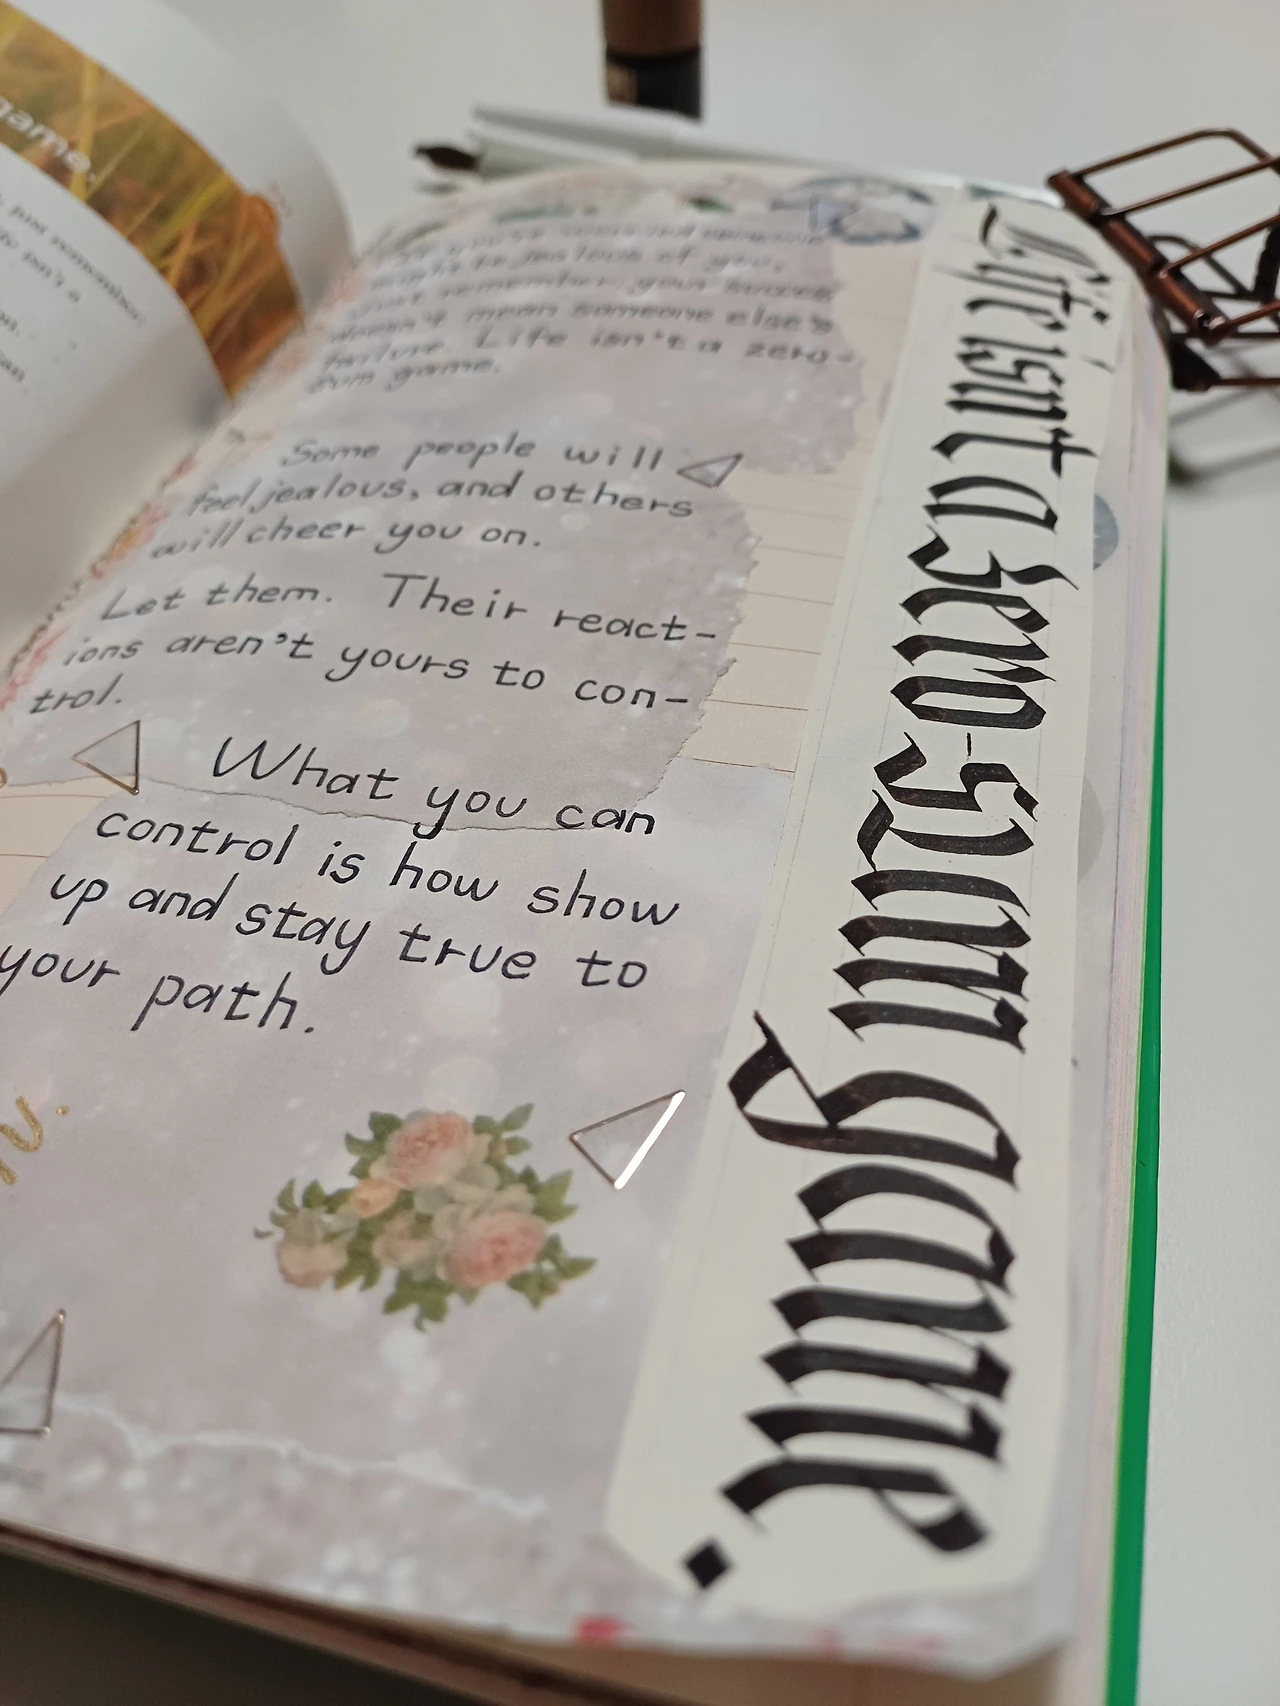 game.
just remember:
isn't a
on.
can
might be jealous of you,
just remember, your success
doesn't mean someone else's
failure. Life isn't a zero-
sum game.
Some people will
feel jealous, and others
will cheer you on.
Let them. Their react-
ions aren't yours to con-
trol.
What you can
control is how show
up and stay true to
your path.
Life isn't a zero-sum game.